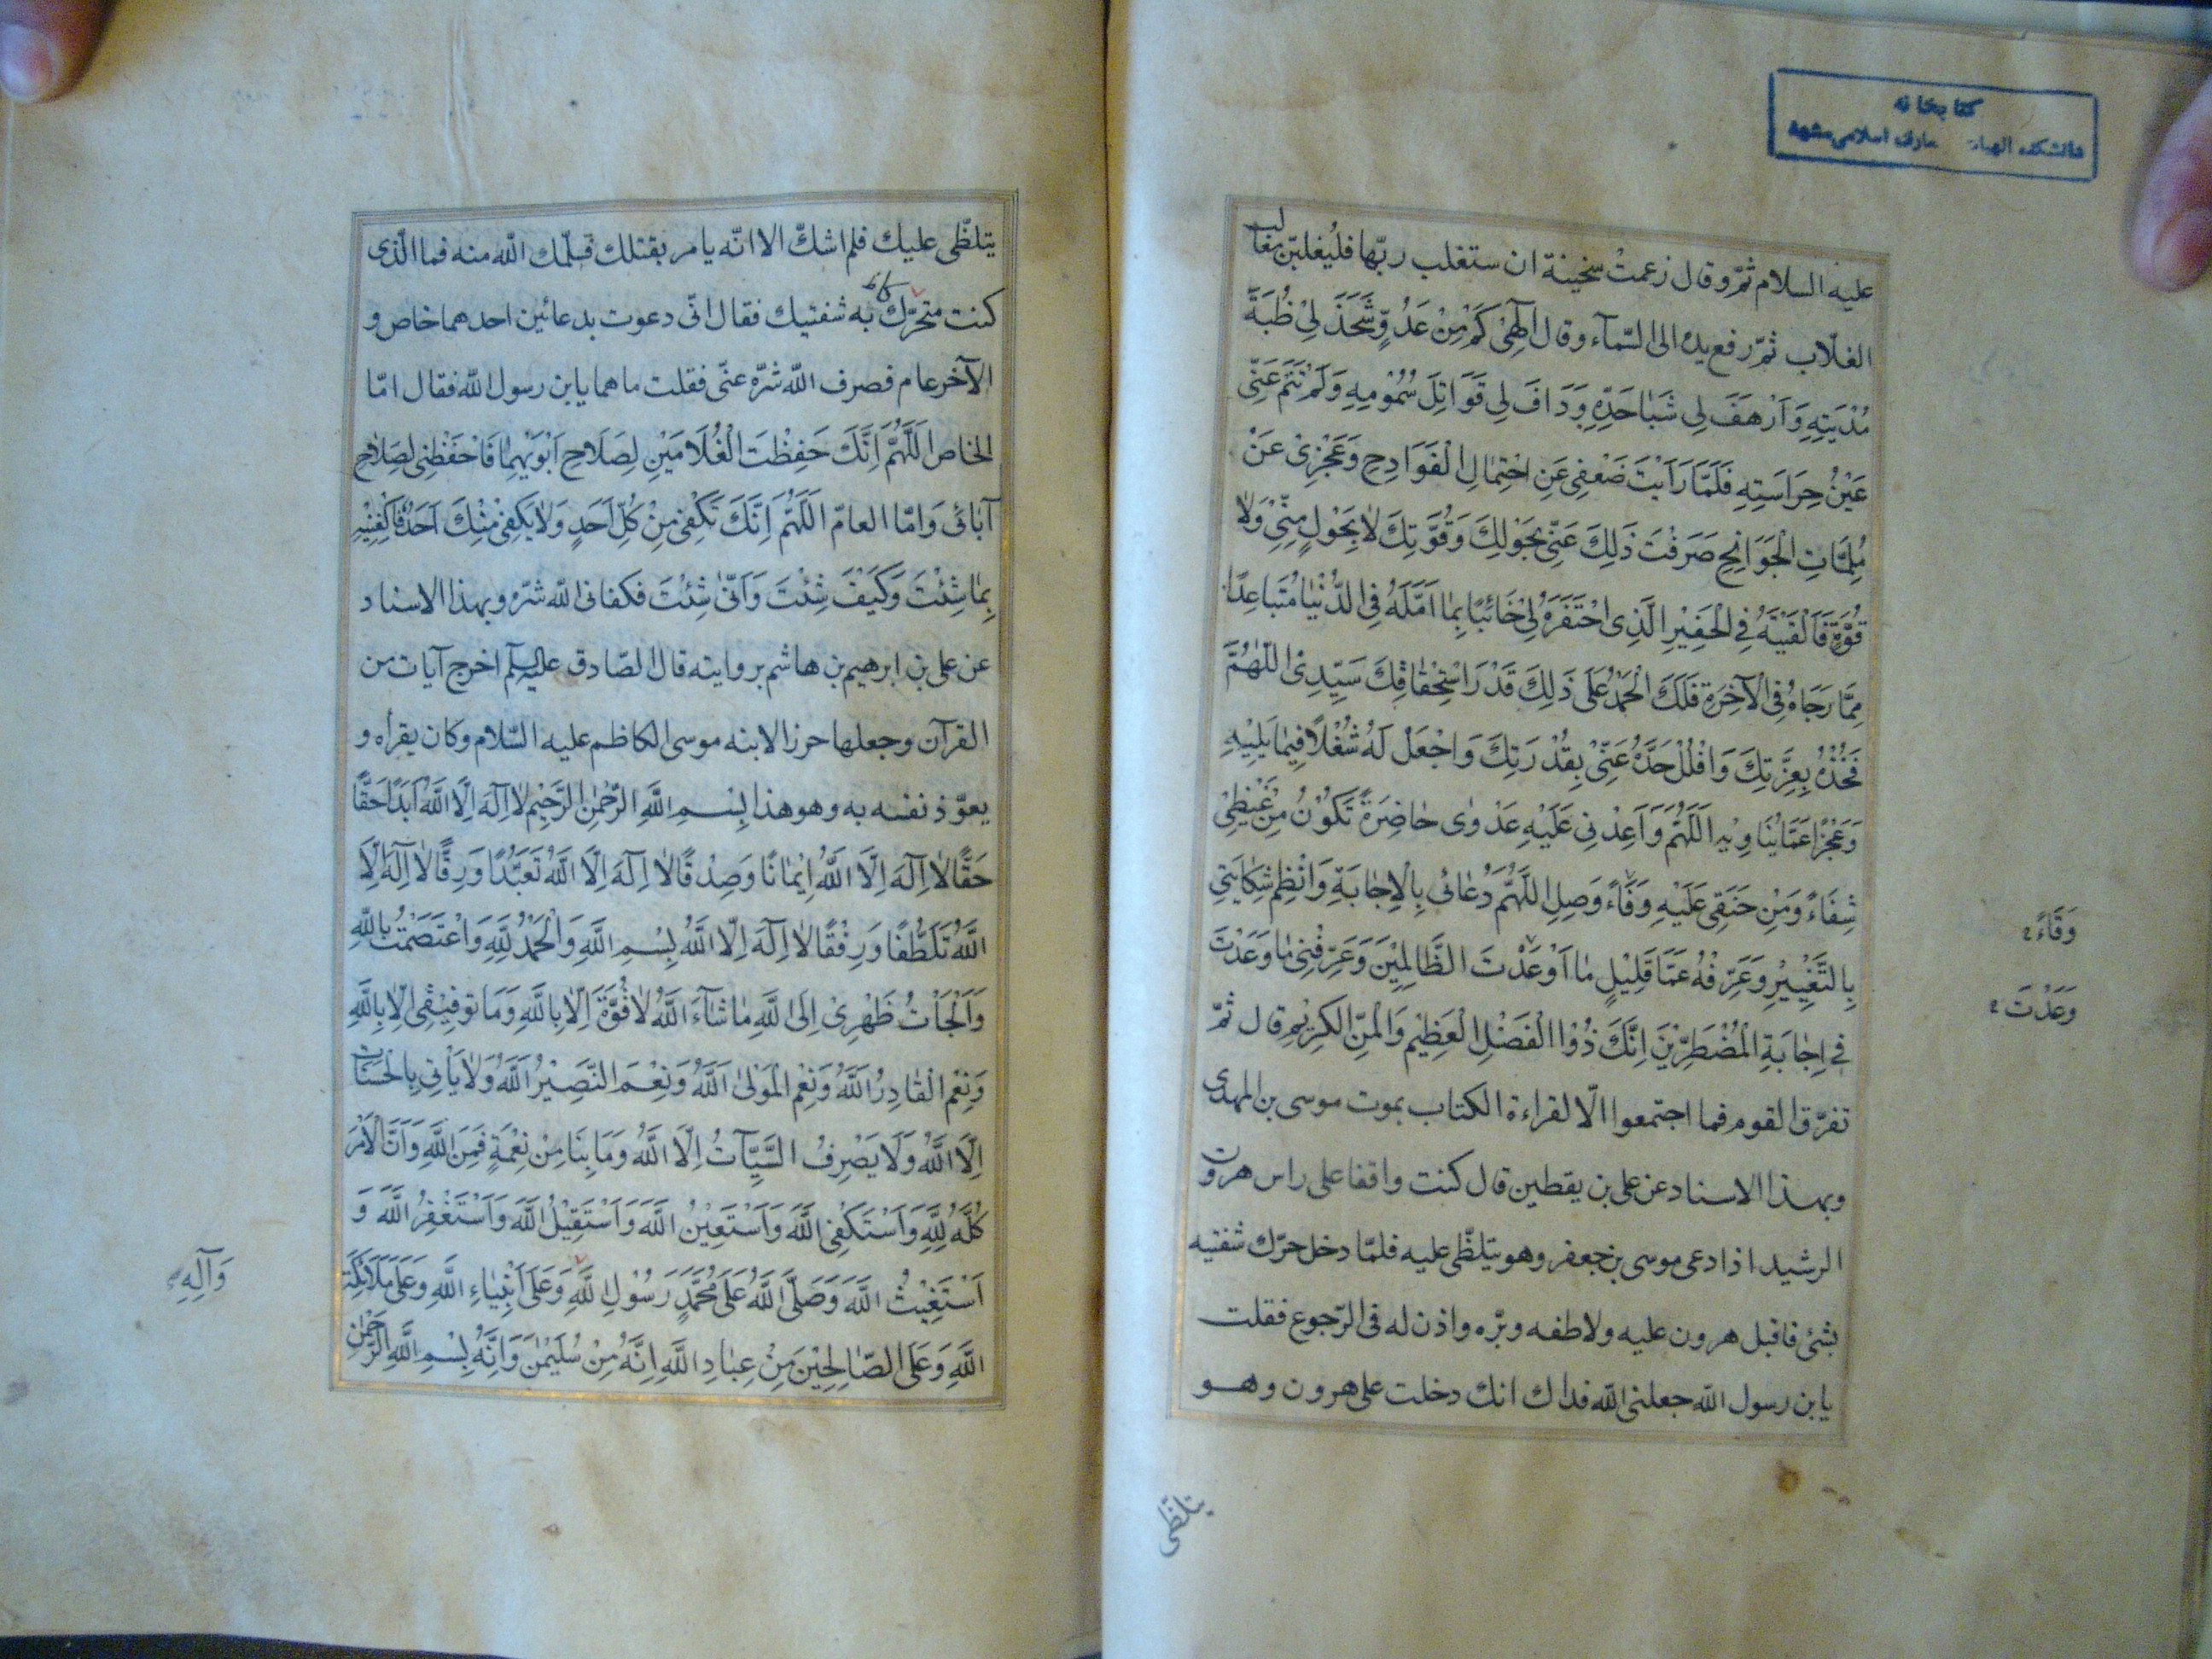 كتابخانه
دانشكده الهيات معارف اسلامى مشهد
عليه السلام ثمّ وقال زعمتْ سخينة ان ستغلب ربّها فليُغلبّن مغالب
الغلّاب ثمّ رفع يده الى السّمآء وقال اِلٓهِىْ كَمْ مِنْ عَدُوٍّ شَحَذَ لِىْ ظُبَةَ
مُدْيَتِهِ وَاَرْهَفَ لِى شَبٰا حَدِّهِ وَدَافَ لِى قَوَاتِلَ سُمُوْمِهِ وَلَمْ تَنَمْ عَنِّى
عَيْنُ حِرَاسَتِهِ فَلَمَّا رَاَيْتَ ضَعْفِى عَنِ احْتِمٰالِ الْفَوَادِحِ وَعَجْزِىْ عَنْ
مُلِمَّاتِ الْجَوَانِحِ صَرَفْتَ ذَلِكَ عَنِّى بِحَوْلِكَ وَقُوَّتِكَ لاٰ بِحَوْلٍ مِنِّىْ وَلاٰ
قُوَّةٍ فَاَلْقَيْتَهُ فِى الْحَفِيْرِ الَّذِى احْتَفَرَهُ لِىْ خَائِبًا بِمٰا اَمَّلَهُ فِى الدُّنْيٰا مُتَبٰاعِدًا
مِمَّا رَجَاهُ فِى الْآخِرَةِ فَلَكَ الْحَمْدُ عَلَى ذَلِكَ قَدْرَ اسْتِحْقٰاقِكَ سَيِّدِىْ اللّٰهُمَّ
فَخُذْهُ بِعِزَّتِكَ وَافْلُلْ حَدَّهُ عَنِّىْ بِقُدْرَتِكَ وَاجْعَلْ لَهُ شُغْلًا فِيمٰا يَلِيْهِ
وَعَجْزًا عَمَّا يُنَاوِيْهِ اَللَّهُمَّ وَاَعِدْنِى عَلَيْهِ عَدْوٰى حٰاضِرَةً تَكُوْنُ مِنْ غَيْظِىْ
شِفَاءً وَمِنْ حَنَقِى عَلَيْهِ وَفَاءً وَصِلِ اللَّهُمَّ دُعٰائى بِالْاِجٰابَةِ وَانْظِمْ شِكٰايَتِى
بِالتَّغْيِيْرِ وَعَرِّفْهُ عَمَّا قَلِيْلٍ مٰا اَوْعَدْتَ الظَّالِمِيْنَ وَعَرِّفْنِى مٰا وَعَدْتَ
فِى اِجٰابَةِ الْمُضْطَرِّيْنَ اِنَّكَ ذُوْا الْفَضْلِ الْعَظِيْمِ وَالْمَنِّ الكَرِيْمِ قال ثمّ
تفرّق القوم فما اجتمعوا الّا لقراءة الكتاب بموت موسى بن المهدى
وبهذا الاسناد عن على بن يقطين قال كنت واقفا على راس هرون
الرشيد اذا دعى موسى بن جعفر وهو يتلظّى عليه فلمّا دخل حرّك شفتيه
بشئ فاقبل هرون عليه ولاطفه وبرّه واذن له فى الرّجوع فقلت
يا بن رسول الله جعلنى الله فداك انك دخلت على هرون وهو
وَقَاءً
وَعَدْتَ
يتلظّى
يتلظّى عليك فلم اشكّ الا انّه يامر بقتلك فسلّمك الله منه فما الّذى
كنت متحرّك به شفتيك فقال انّى دعوت بدعائين احدهما خاص و
الآخر عام فصرف الله شرّه عنّى فقلت ما هما يا بن رسول الله فقال امّا
الخاص اَللَّهُمَّ اِنَّكَ حَفِظْتَ الْغُلَامَيْنِ لِصَلَاحِ اَبَوَيْهِمٰا فَاحْفَظْنِى لِصَلاٰحِ
آبٰائى وَامّا العامّ اَللَّهُمَّ اِنَّكَ تَكْفِىْ مِنْ كُلِّ اَحَدٍ وَلاٰ يَكْفِىْ مِنْكَ اَحَدٌ فَاكْفِنِيْهِ
بِمٰا شِئْتَ وَكَيْفَ شِئْتَ وَاَنّىٰ شِئْتَ فكفانى الله شرّه وبهذا الاسناد
عن على بن ابرهيم بن هاشم بروايته قال الصّادق عليه السلم اخرج آيات من
القرآن وجعلها حرزا لابنه موسى الكاظم عليه السّلام وكان يقرأه و
يعوّذ نفسه به وهو هذا بِسْمِ اللَّهِ الرَّحْمٰنِ الرَّحِيْمِ لاٰ اِلٰهَ اِلَّا اللَّهُ اَبَدًا حَقًّا
حَقًّا لاٰ اِلٓهَ اِلَّا اللَّهُ اِيْمٰانًا وَصِدْقًا لاٰ اِلٓهَ اِلَّا اللَّهُ تَعَبُّدًا وَرِقًّا لاٰ اِلٓهَ اِلَّا
اللَّهُ تَلَطُّفًا وَرِفْقًا لاٰ اِلٓهَ اِلّا اللَّهُ بِسْمِ اللَّهِ وَالْحَمْدُ لِلَّهِ وَاعْتَصَمْتُ بِاللَّهِ
وَاَلْجَاْتُ ظَهْرِىْ اِلَى اللَّهِ مٰا شٰآءَ اللَّهُ لاٰ قُوَّةَ اِلّاٰ بِاللَّهِ وَمَا تَوفِيْقِى اِلّاٰ بِاللَّهِ
وَنِعْمَ الْقٰادِرُ اللَّهُ وَنِعْمَ الْمَوْلىٰ اَللَّهُ وَنِعْمَ النَّصِيْرُ اللَّهُ وَلاٰ يَاْتِى بِالْحَسَنٰاتِ
اِلَّا اللَّهُ وَلَا يَصْرِفُ السَّيِّآتِ اِلَّا اللَّهُ وَمَا بِنَا مِنْ نِعْمَةٍ فَمِنَ اللَّهِ وَاَنَّ الْاَمْرَ
كُلَّهُ لِلَّهِ وَاَسْتَكْفِى اللَّهَ وَاَسْتَعِيْنُ اللَّهَ وَاَسْتَقِيْلُ اللَّهَ وَاَسْتَغْفِرُ اللَّهَ وَ
اَسْتَغِيْثُ اللَّهَ وَصَلَّى اللَّهُ عَلَى مُحَمَّدٍ رَسُوْلِ اللَّهِ وَعَلَى اَنْبِيٰاءِ اللَّهِ وَعَلَى مَلَائِكَةِ
اللَّهِ وَعَلَى الصّٰالِحِيْنَ مِنْ عِبٰادِ اللَّهِ اِنَّهُ مِنْ سُلَيْمٰنَ وَاِنَّهُ بِسْمِ اللَّهِ الرَّحْمٰنِ
وَآلِهِ